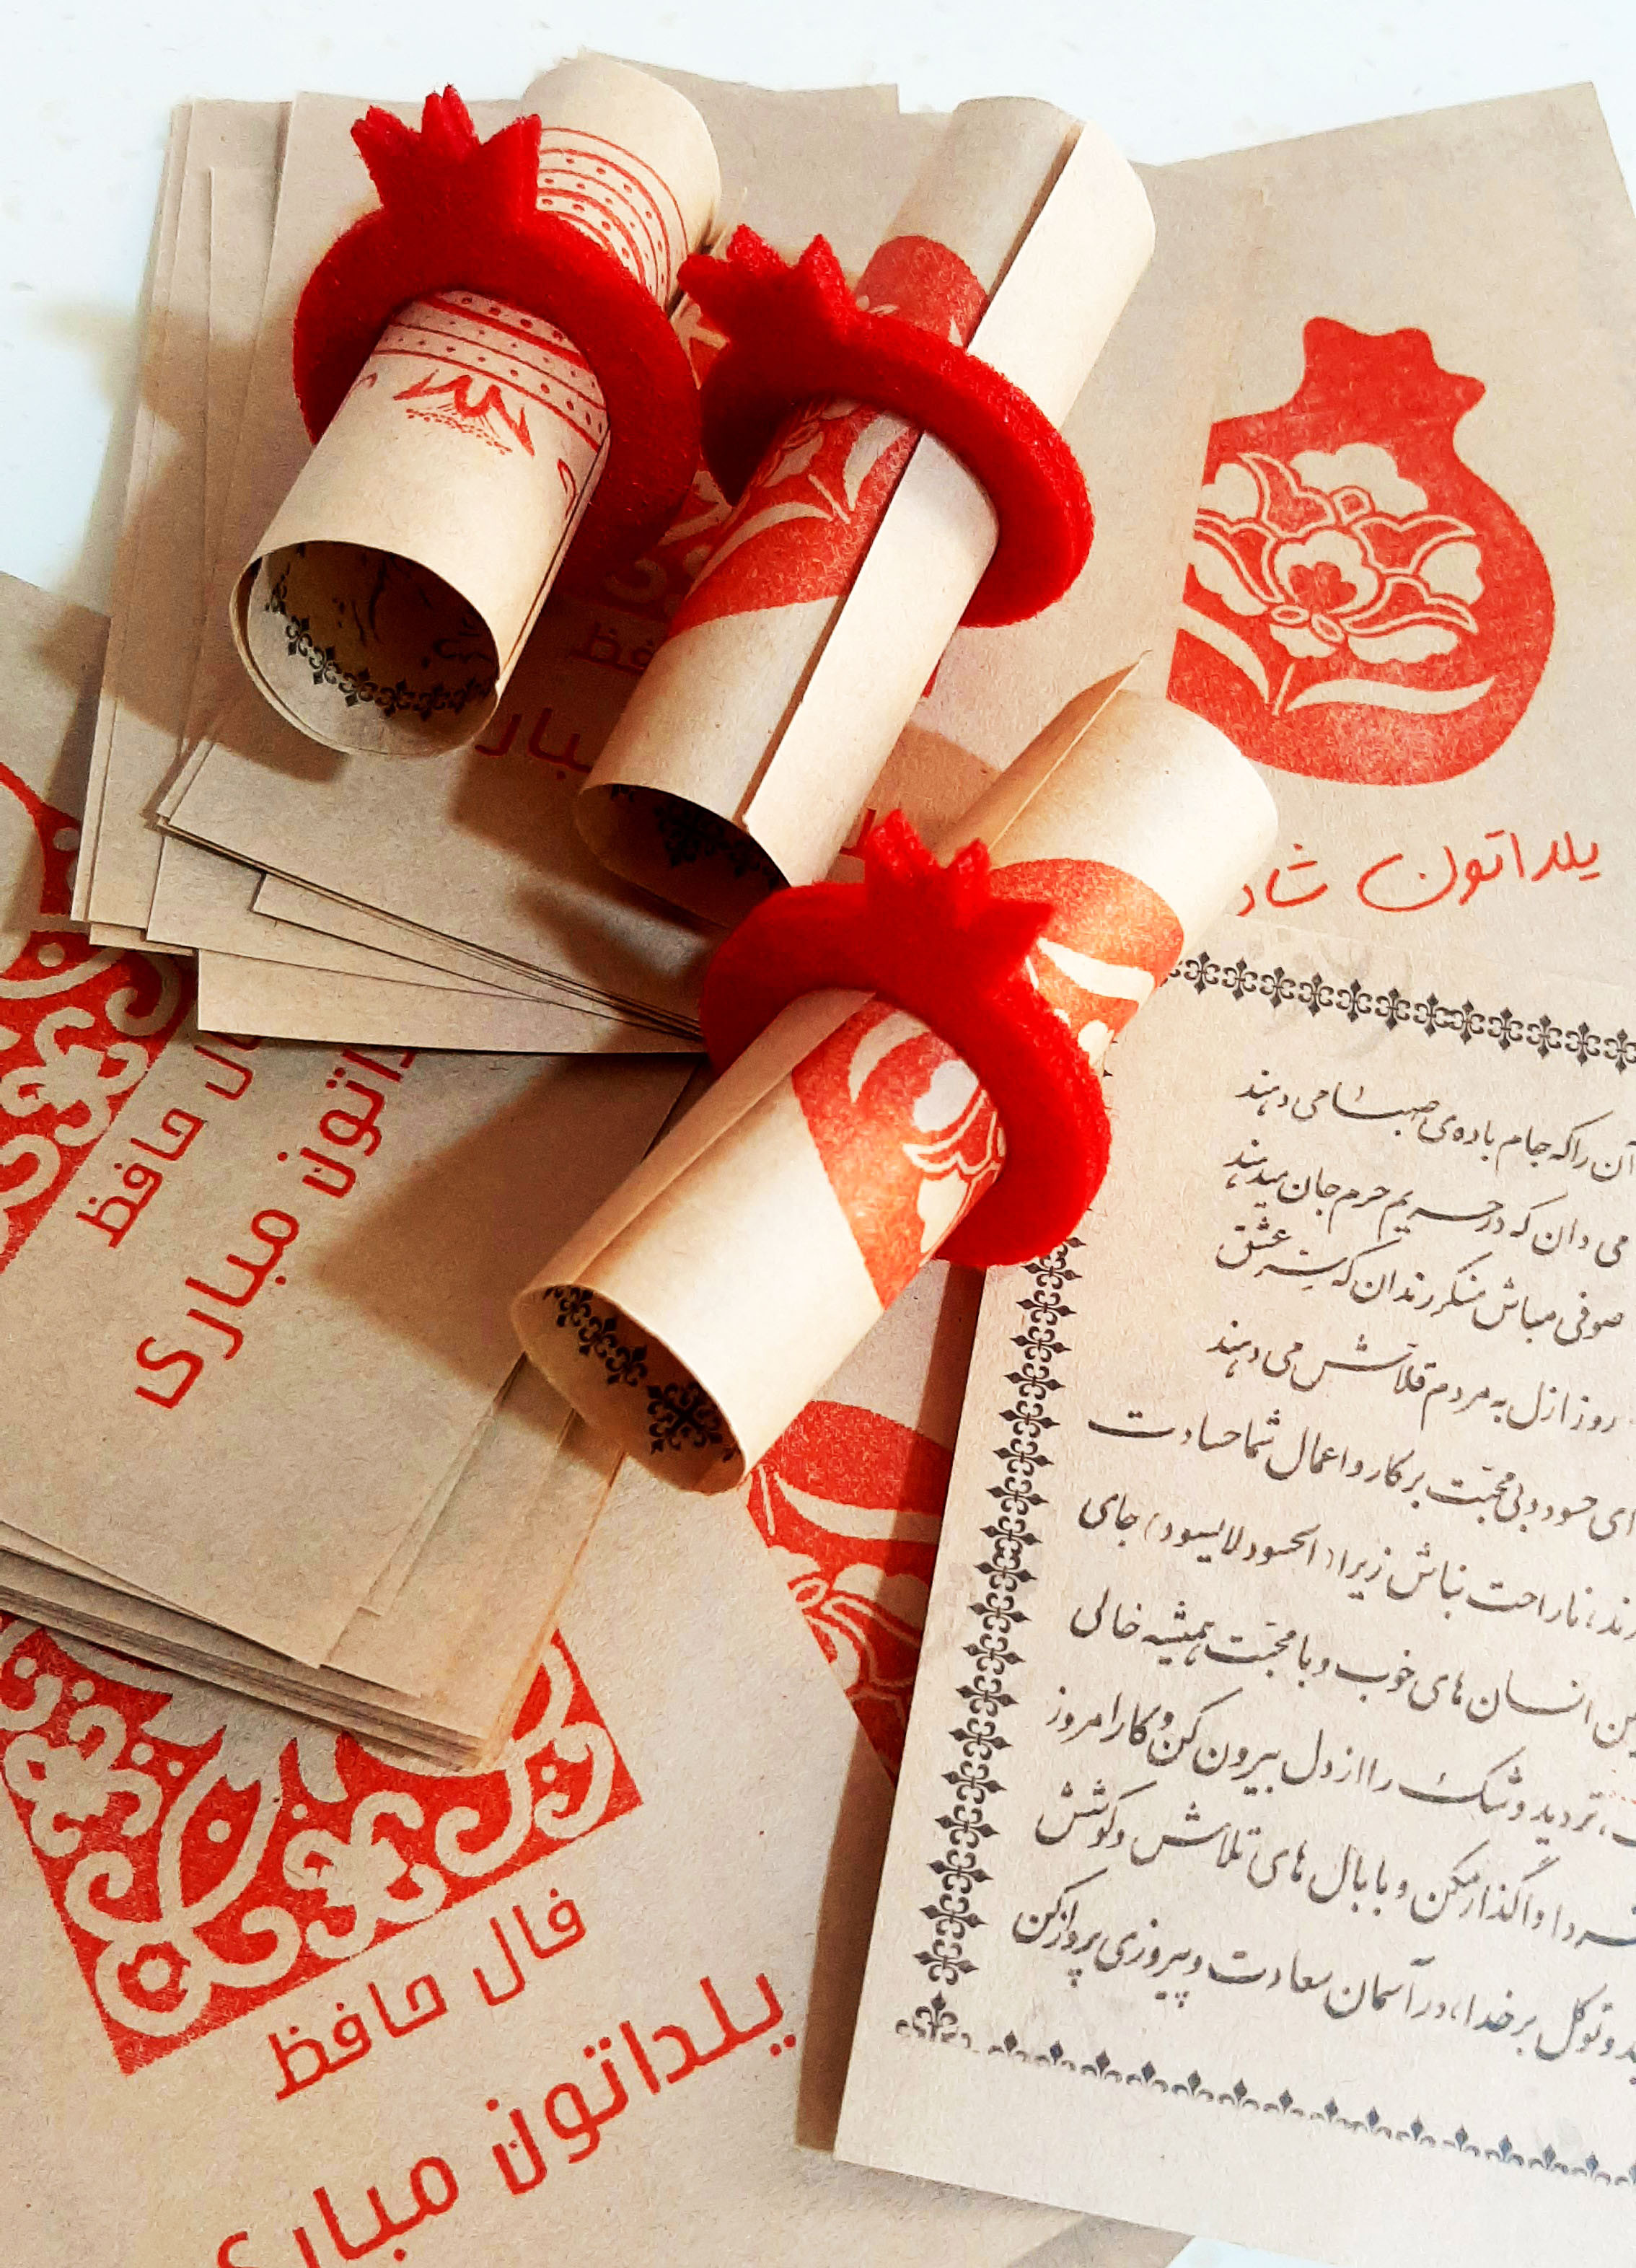 یلداتون شاد
آن را که جام باده‌ی صهبا می دهند
می دان که در حریم حرم جان میدهند
صوفی مباش منکر رندان که سرّ عشق
روز ازل به مردم قلاش می دهند
ای حسود و بی محبّت بر کار و اعمال شما حسادت
ناراحت نباش زیرا (الحسود لا یسود) جای
انسان های خوب و با محبّت همیشه خالی
تردید و شک را از دل بیرون کن و کار امروز
واگذار مکن و با بال های تلاش و کوشش
و توکل بر خدا، در آسمان سعادت و پیروزی پرواز کن
حافظ
یلداتون مباری
فال حافظ
یلداتون مباری